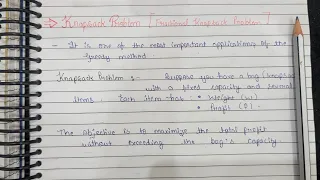 ⇒ Knapsack Problem [Fractional Knapsack Problem]
- It is one of the most important applications of the
greedy method.
Knapsack Problem :- Suppose you have a bag (knapsack)
with a fixed capacity and several
items. Each item has • Weight (w)
• Profit (P).
The objective is to maximize the total profit
without exceeding the bag's capacity.